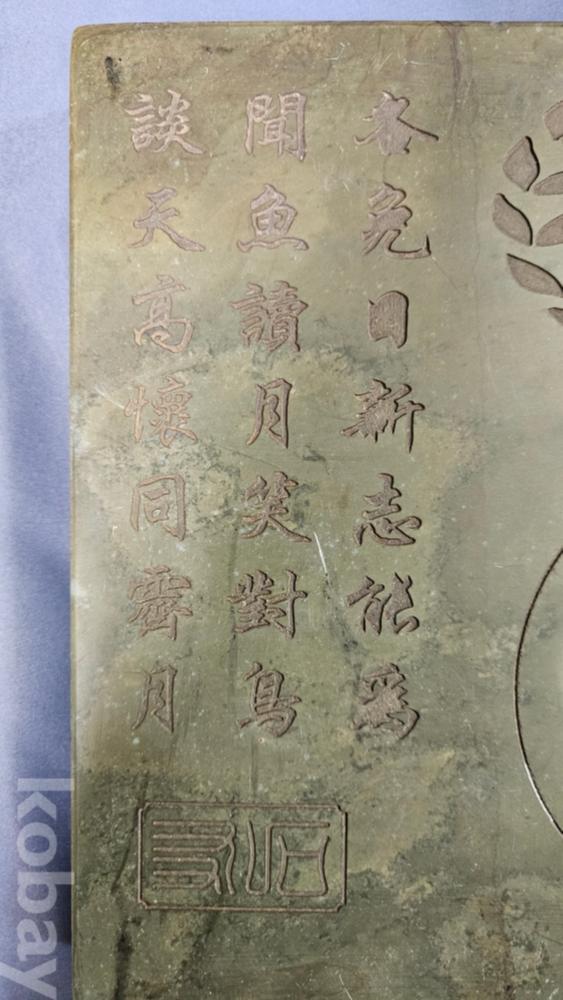 各免日新志能爲
聞魚讀月笑對鳥
談天高懷同霽月
kobay